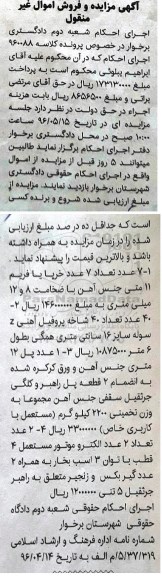 آگهی مزایده و فروش اموال غیر
منقول
اجرای احکام شعبه دوم دادگستری
برخوار در خصوص پرونده کلاسه ۹۶۰۰۸۸
اجرای احکام که در آن محکوم علیه آقای
ابراهیم بیلوئی محکوم است به پرداخت
مبلغ ۱۷۳۱۳۰۰۰۰ ریال در حق آقای مرتضی
براتی و مبلغ ۸۶۵۶۵۰۰ ریال بابت هزینه
اجراء در حق دولت در نظر دارد جلسه
مزایده ای در تاریخ ۹۶/۰۵/۱۵ ساعت
۱۰:۰۰ صبح در محل دادگستری برخوار
دفتر اجرای احکام برگزار نماید طالبین
میتوانند ۵ روز قبل از مزایده از اموال
واقع در اجرای احکام حقوقی دادگستری
شهرستان برخوار بازدید نمایند. مزایده از
مبلغ ارزیابی شده شروع و برنده کسی
است که حداقل ده در صد مبلغ ارزیابی
شده را در زمان مزایده به همراه داشته
باشد و بالاترین قیمت را پیشنهاد نماید.
۱-۷ عدد تعداد ۷ عدد خرپا یا فریم
۱۱ متی جنس آهن با ضخامت ۸ و ۱۲
میلی متری به مبلغ ۱۴۶۰۰۰۰۰۰ ریال ۲-
۴۰ عدد تعداد ۴۰ شاخه پروفیل آهنی z
سوله سایز ۱۶ سانتی متری همگی بطول
۶ متر ۱۰۸۷۵۰۰۰ ریال ۳- ۱ عدد پل ۱۲
متری جنس آهن و ورق کرکره شده
به انضمام ۲ قطعه پل راهبر و کلگی
جرثقیل سقفی جنس آهن مجموعا به
وزن تخمینی ۲۲۰۰ کیلو گرم (مستعمل با
کاربری خاص) ۳۳۰۰۰۰۰۰ ریال ۴- ۲ عدد
تعداد ۲ عدد الکترو موتور مستعمل ۴
قطب با توان ۳ اسب بخار به همراه ۲
عدد گیر بکس و زنجیر متعلق به راهبر
جرثقیل ۵ تنی ۱۲۰۰۰۰۰۰ ریال
اجرای احکام حقوقی شعبه دوم دادگاه
حقوقی شهرستان برخوار
شماره نامه اداره فرهنگ و ارشاد اسلامی
۵/۳۷/۳۱۹/م الف به تاریخ ۹۶/۰۴/۱۴